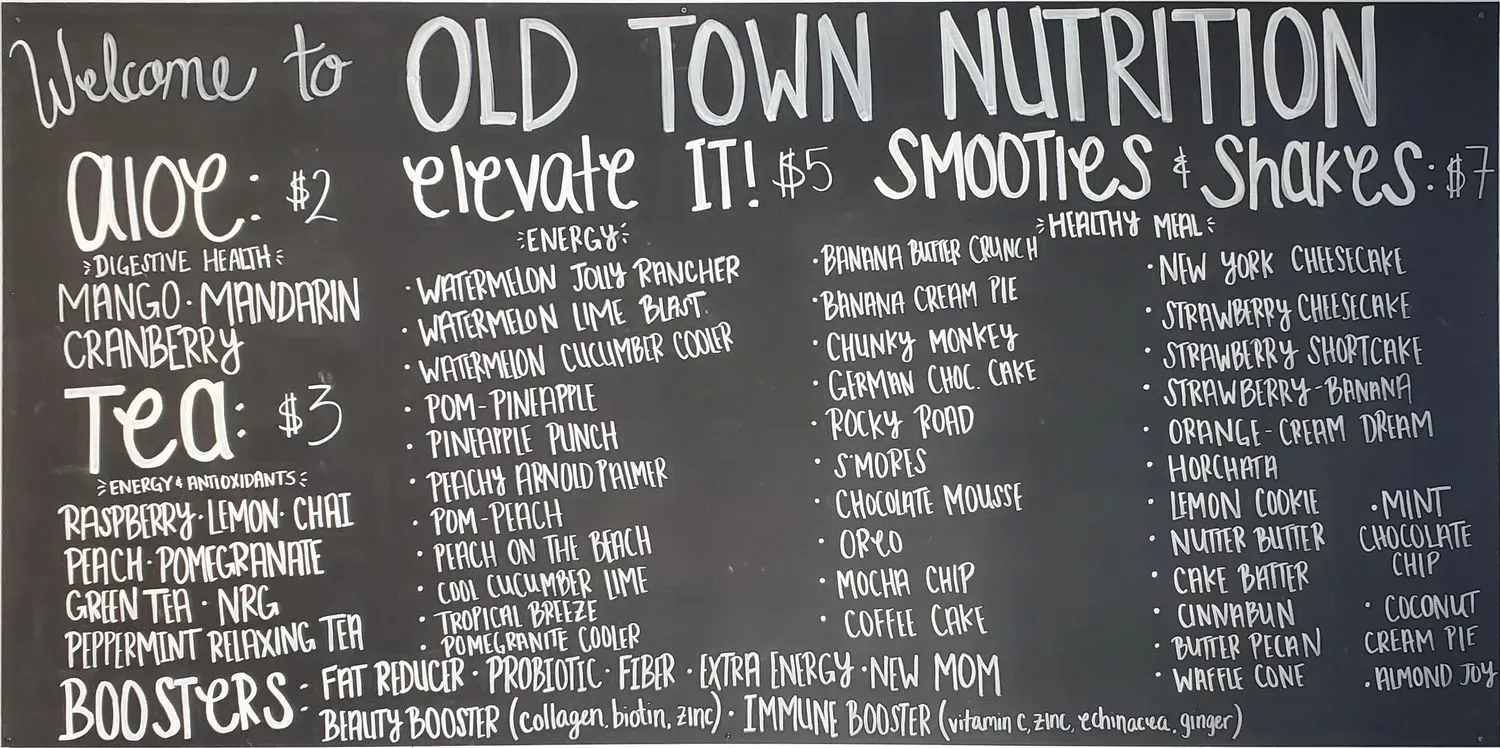 Welcome to OLD TOWN NUTRITION
aloe: $2
DIGESTIVE HEALTH
MANGO · MANDARIN
CRANBERRY
Tea: $3
ENERGY & ANTIOXIDANTS
RASPBERRY · LEMON · CHAI
PEACH · POMEGRANATE
GREEN TEA · NRG
PEPPERMINT RELAXING TEA
elevate IT! $5
ENERGY
· WATERMELON JOLLY RANCHER
· WATERMELON LIME BLAST
· WATERMELON CUCUMBER COOLER
· POM-PINEAPPLE
· PINEAPPLE PUNCH
· PEACHY ARNOLD PALMER
· POM-PEACH
· PEACH ON THE BEACH
· COOL CUCUMBER LIME
· TROPICAL BREEZE
· POMEGRANITE COOLER
SMOOTIES & SHAKES: $7
HEALTHY MEAL
· BANANA BUTTER CRUNCH
· BANANA CREAM PIE
· CHUNKY MONKEY
· GERMAN CHOC. CAKE
· ROCKY ROAD
· S'MORES
· CHOCOLATE MOUSSE
· OREO
· MOCHA CHIP
· COFFEE CAKE
· NEW YORK CHEESECAKE
· STRAWBERRY CHEESECAKE
· STRAWBERRY SHORTCAKE
· STRAWBERRY-BANANA
· ORANGE-CREAM DREAM
· HORCHATA
· LEMON COOKIE
· NUTTER BUTTER
· CAKE BATTER
· CINNABUN
· BUTTER PECAN
· WAFFLE CONE
· MINT
CHOCOLATE
CHIP
· COCONUT
CREAM PIE
· ALMOND JOY
BOOSTERS: FAT REDUCER · PROBIOTIC · FIBER · EXTRA ENERGY · NEW MOM
BEAUTY BOOSTER (collagen, biotin, zinc) · IMMUNE BOOSTER (vitamin c, zinc, echinacea, ginger)